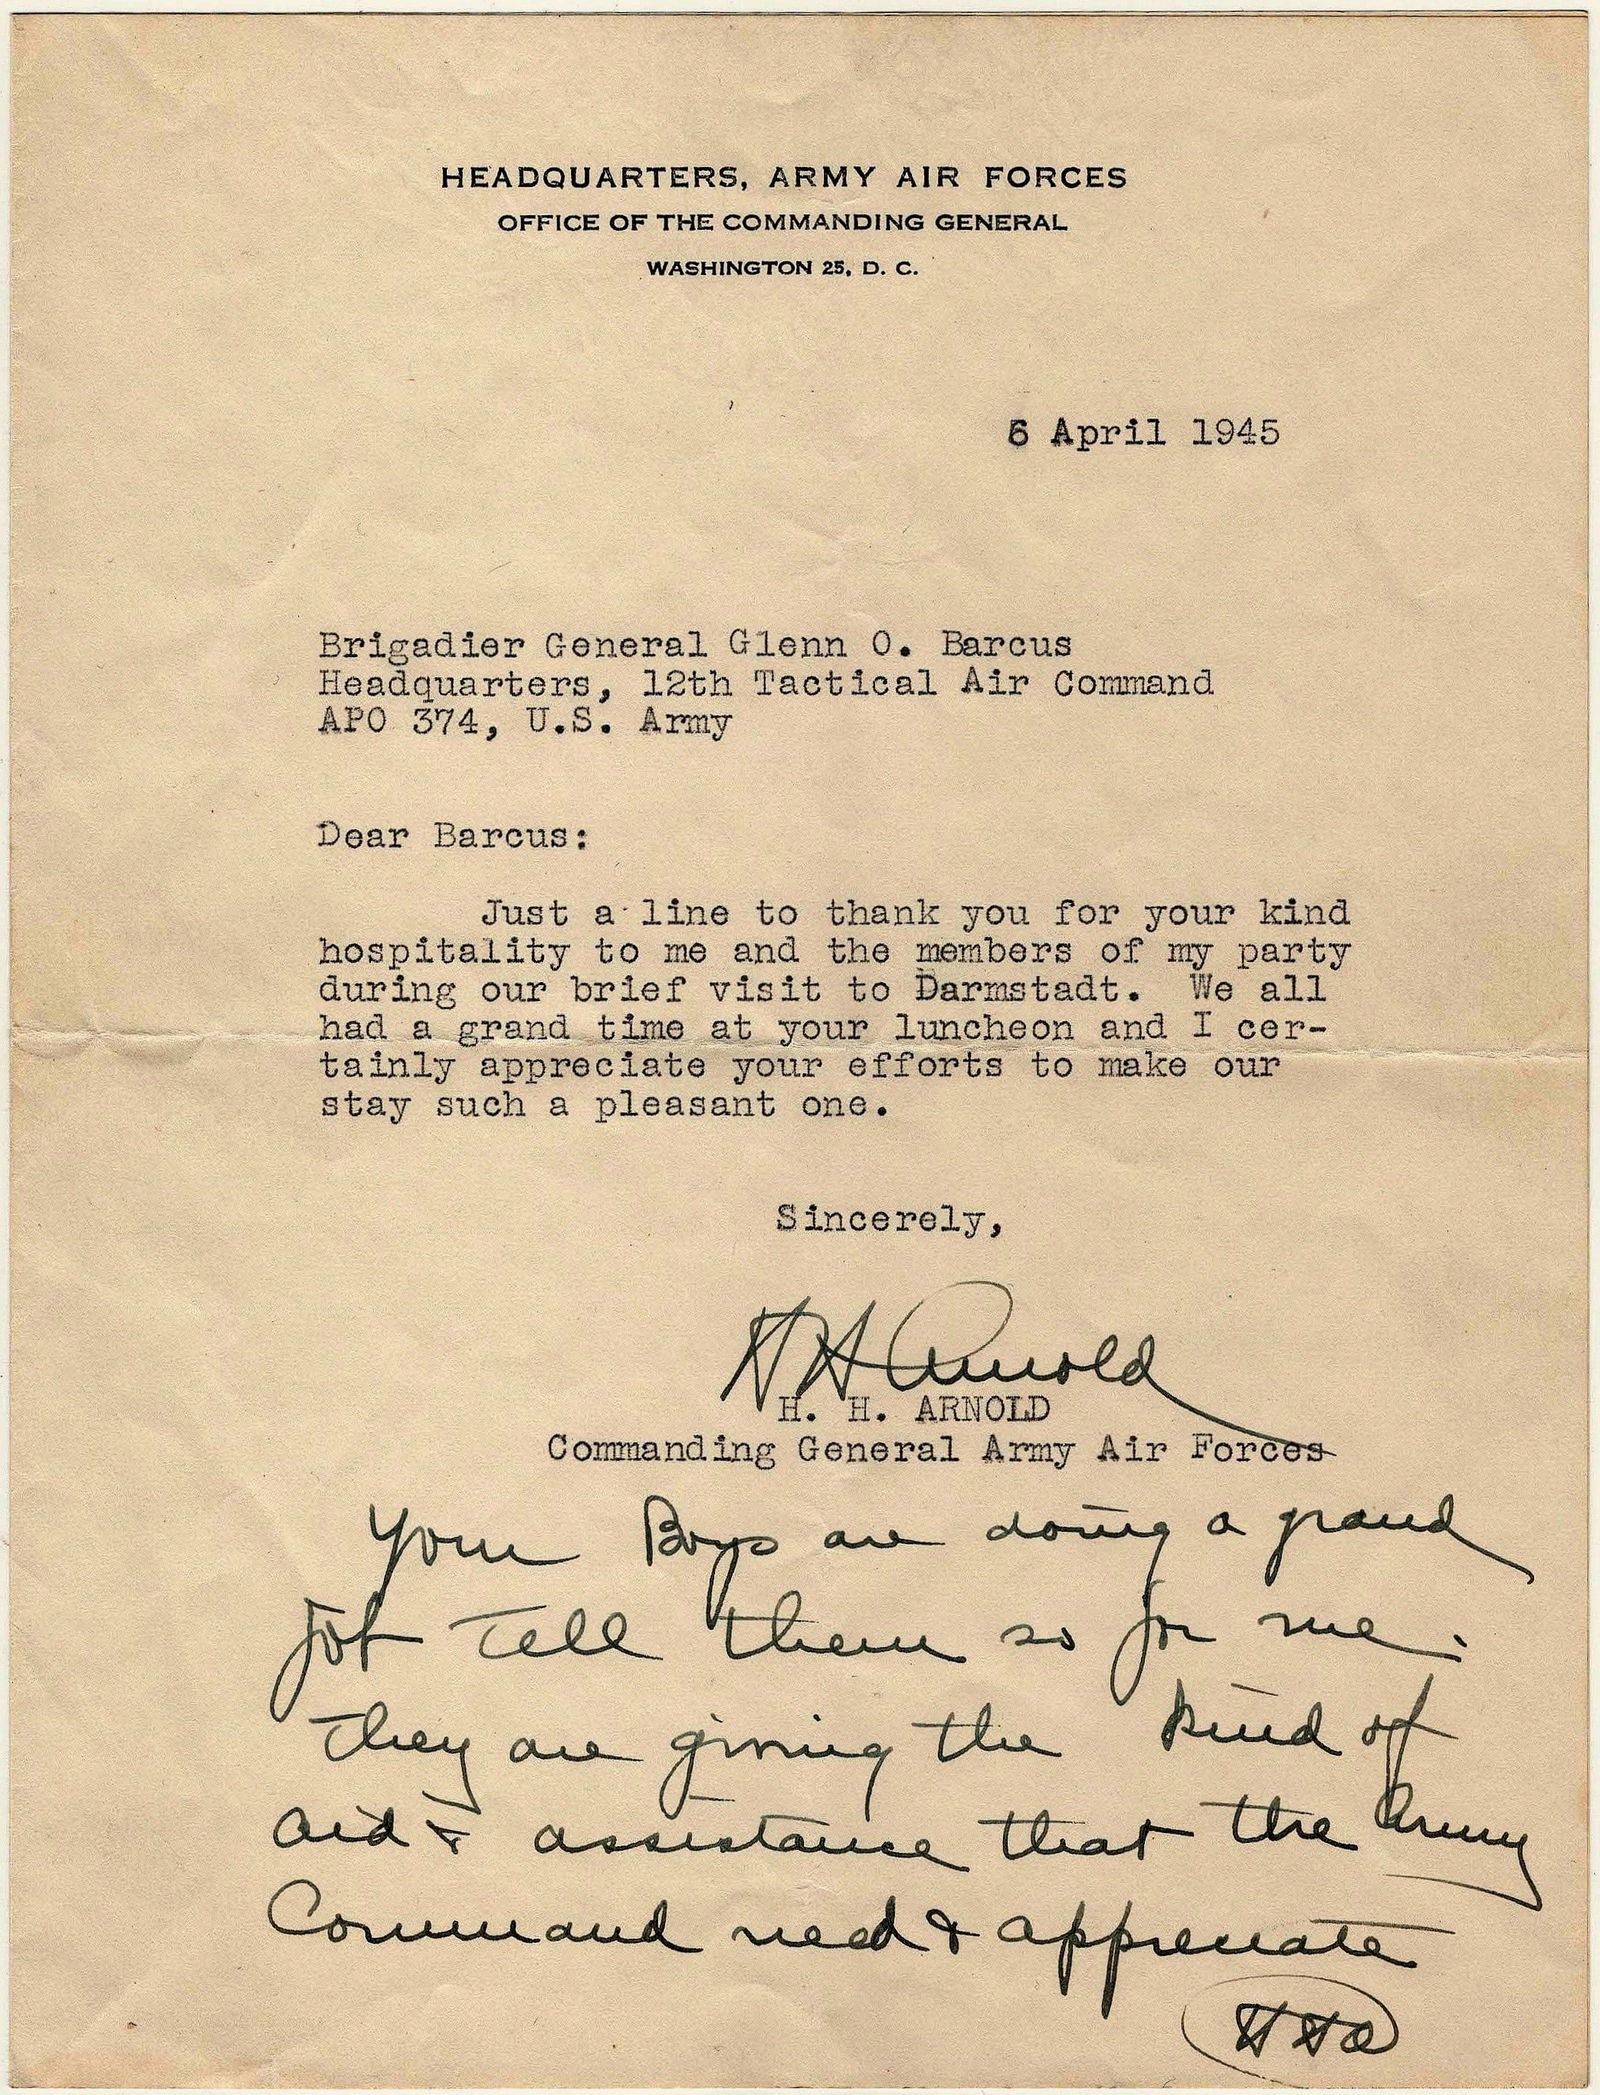 HEADQUARTERS, ARMY AIR FORCES
OFFICE OF THE COMMANDING GENERAL
WASHINGTON 25, D. C.
6 April 1945
Brigadier General Glenn O. Barcus
Headquarters, 12th Tactical Air Command
APO 374, U.S. Army
Dear Barcus:
Just a line to thank you for your kind
hospitality to me and the members of my party
during our brief visit to Darmstadt. We all
had a grand time at your luncheon and I cer-
tainly appreciate your efforts to make our
stay such a pleasant one.
Sincerely,
H H Arnold
H. H. ARNOLD
Commanding General Army Air Forces
Your Boys are doing a grand
job Tell them so for me.
They are giving the kind of
aid & assistance that the Army
Command need & appreciate
HHA